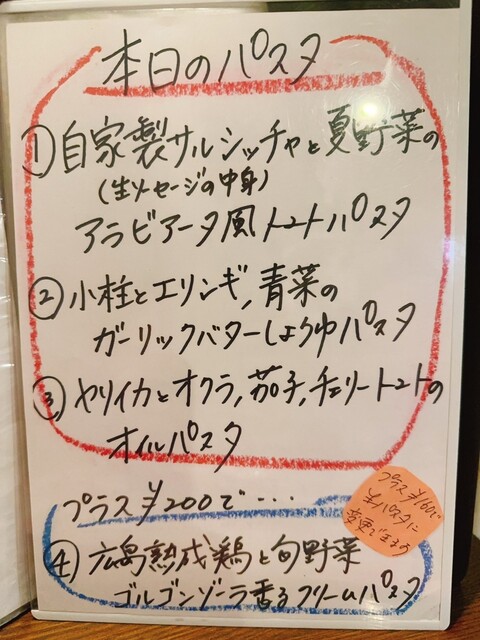 本日のパスタ
① 自家製サルシッチャと夏野菜の
(生ソーセージの中身)
アラビアータ風トマトパスタ
② 小柱とエリンギ,青菜の
ガーリックバターしょうゆパスタ
③ ヤリイカとオクラ,茄子,チェリートマトの
オイルパスタ
プラス¥200で・・・・
④ 広島熟成鶏と旬野菜
ゴルゴンゾーラ香るクリームパスタ
プラス¥100で
生パスタに
変更できます